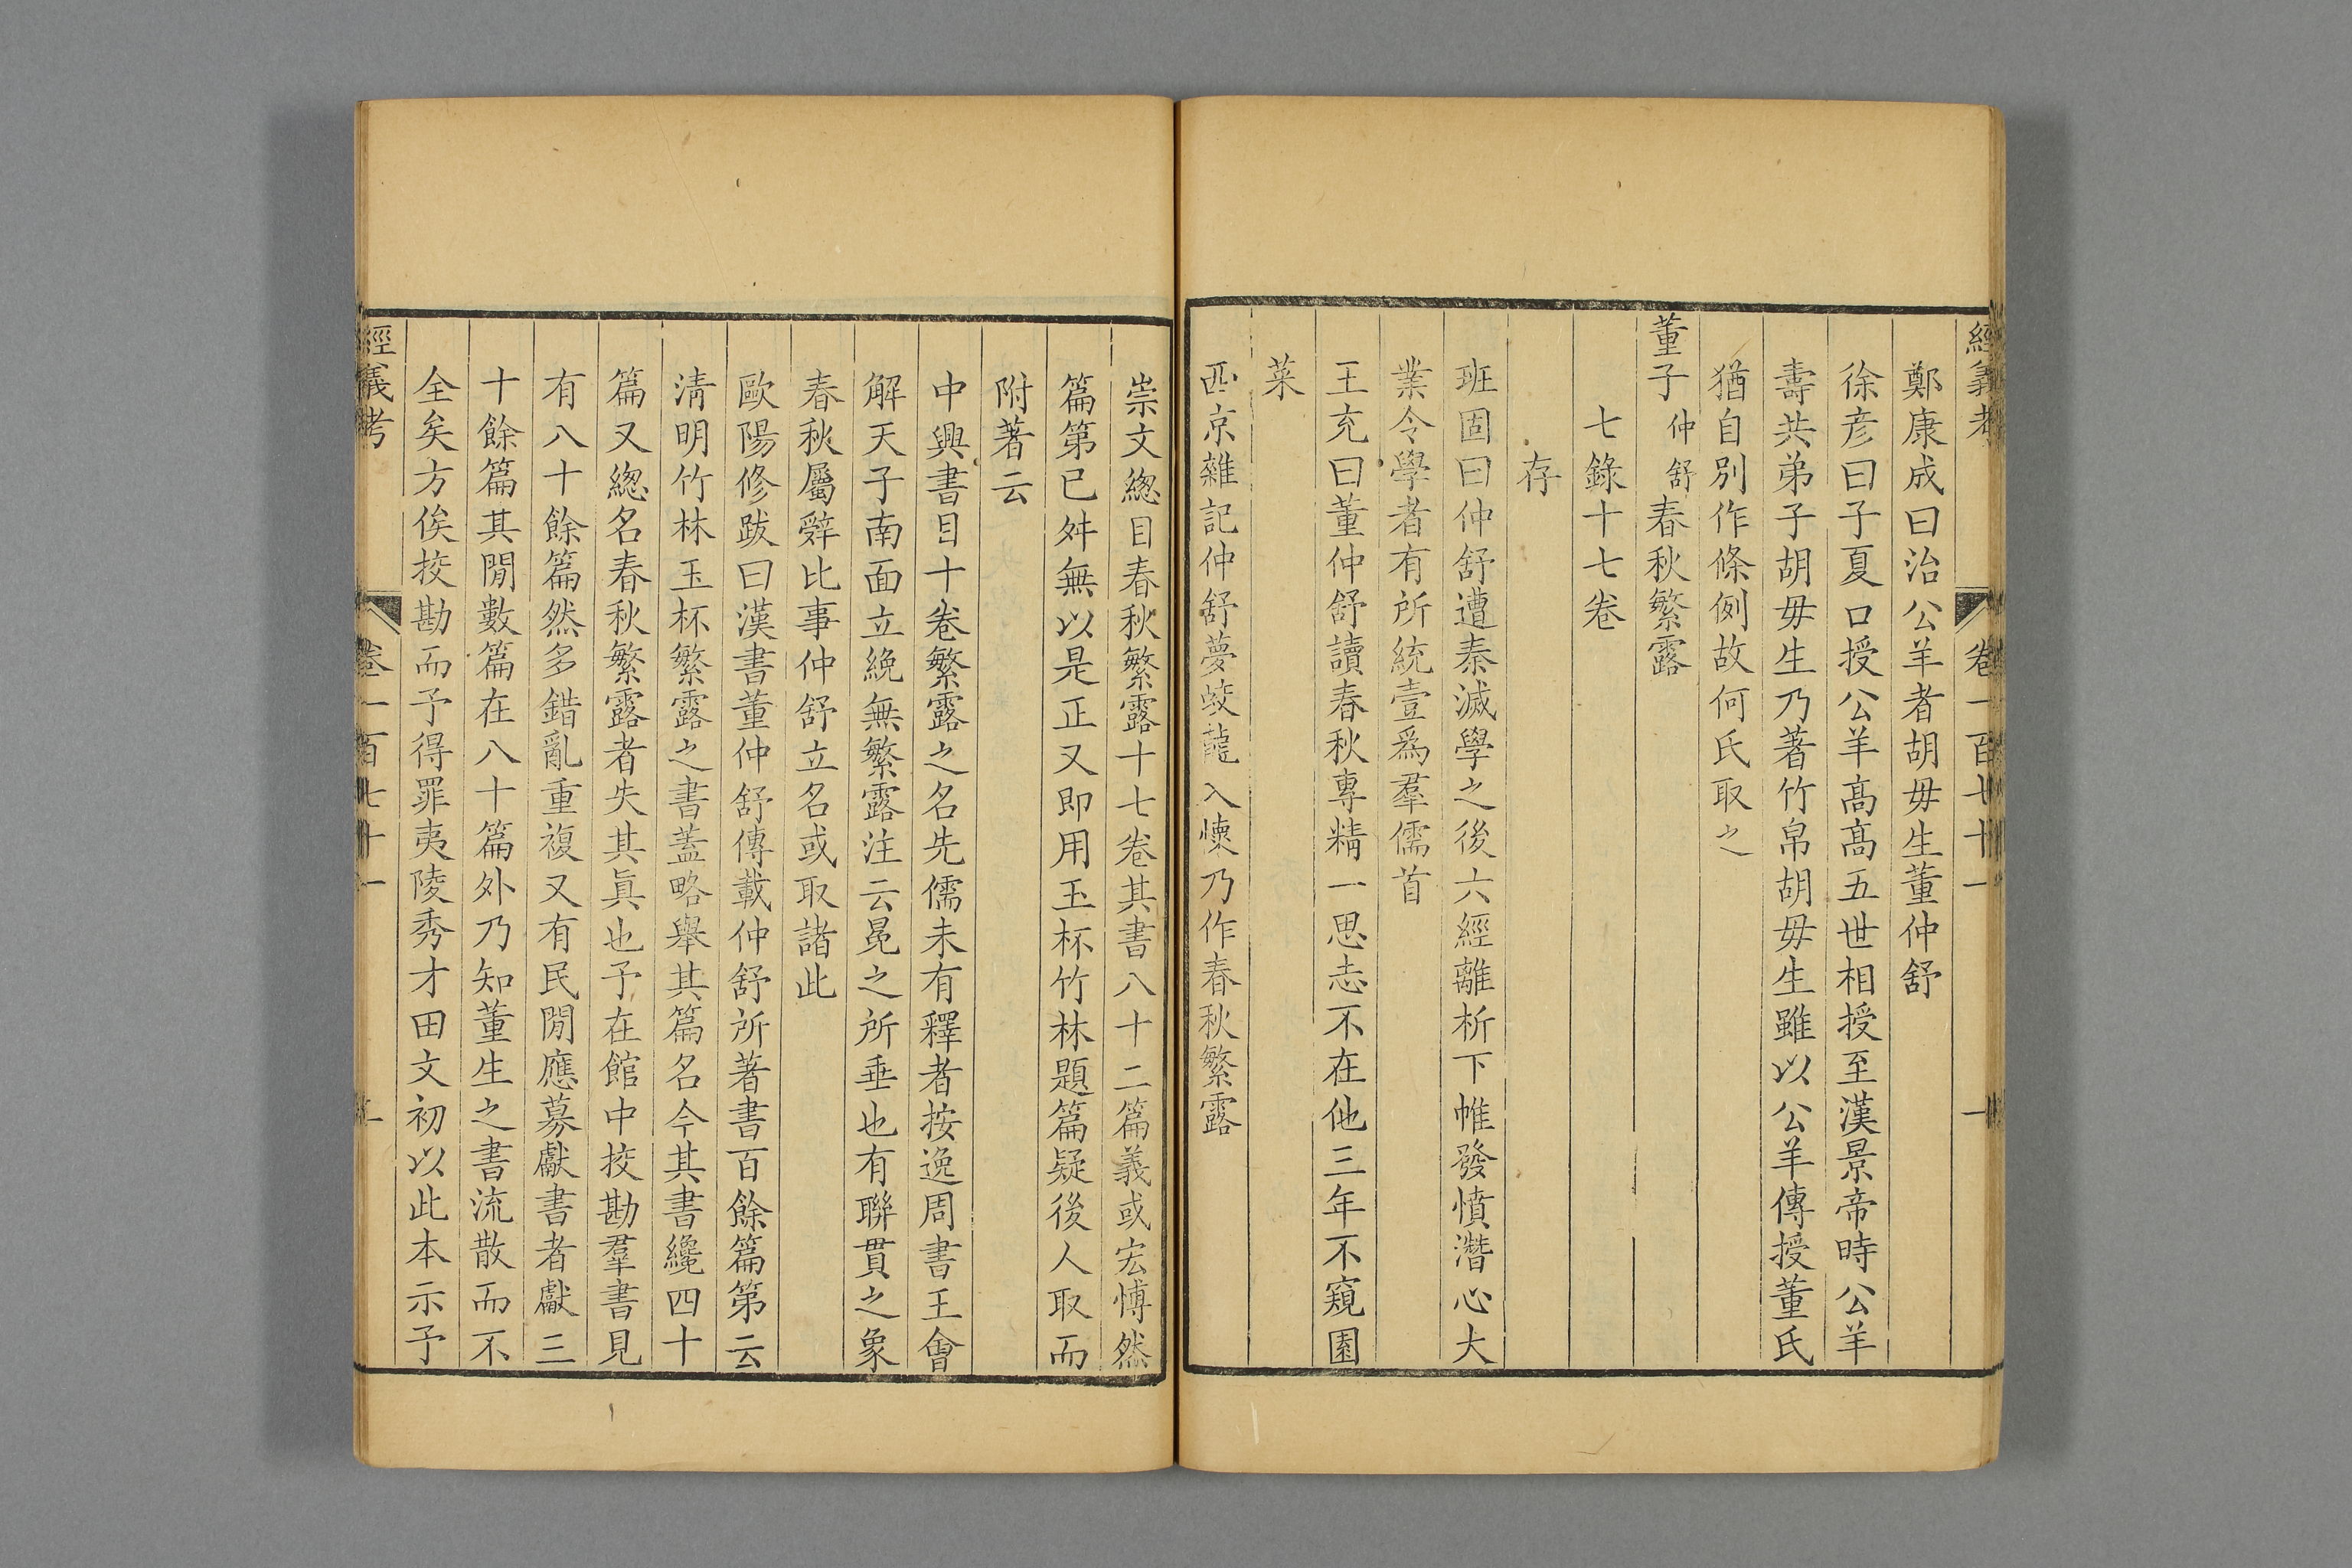 經義考 卷一百七十一 一
鄭康成曰治公羊者胡毋生董仲舒
徐彥曰子夏口授公羊高高五世相授至漢景帝時公羊
壽共弟子胡毋生乃著竹帛胡毋生雖以公羊傳授董氏
猶自別作條例故何氏取之
董子仲舒春秋繁露
七錄十七卷
存
班固曰仲舒遭秦滅學之後六經離析下帷發憤潛心大
業令學者有所統壹爲羣儒首
王充曰董仲舒讀春秋專精一思志不在他三年不窺園
菜
西京雜記仲舒夢蛟龍入懷乃作春秋繁露
崇文緫目春秋繁露十七卷其書八十二篇義或宏博然
篇第已舛無以是正又即用玉杯竹林題篇疑後人取而
附著云
中興書目十卷繁露之名先儒未有釋者按逸周書王會
解天子南面立絻無繁露注云冕之所垂也有聯貫之象
春秋屬辭比事仲舒立名或取諸此
歐陽修跋曰漢書董仲舒傳載仲舒所著書百餘篇第云
淸明竹林玉杯繁露之書蓋略舉其篇名今其書纔四十
篇又緫名春秋繁露者失其眞也予在館中挍勘羣書見
有八十餘篇然多錯亂重複又有民閒應募獻書者獻三
十餘篇其閒數篇在八十篇外乃知董生之書流散而不
全矣方俟挍勘而予得罪夷陵秀才田文初以此本示予
經義考 卷一百七十一